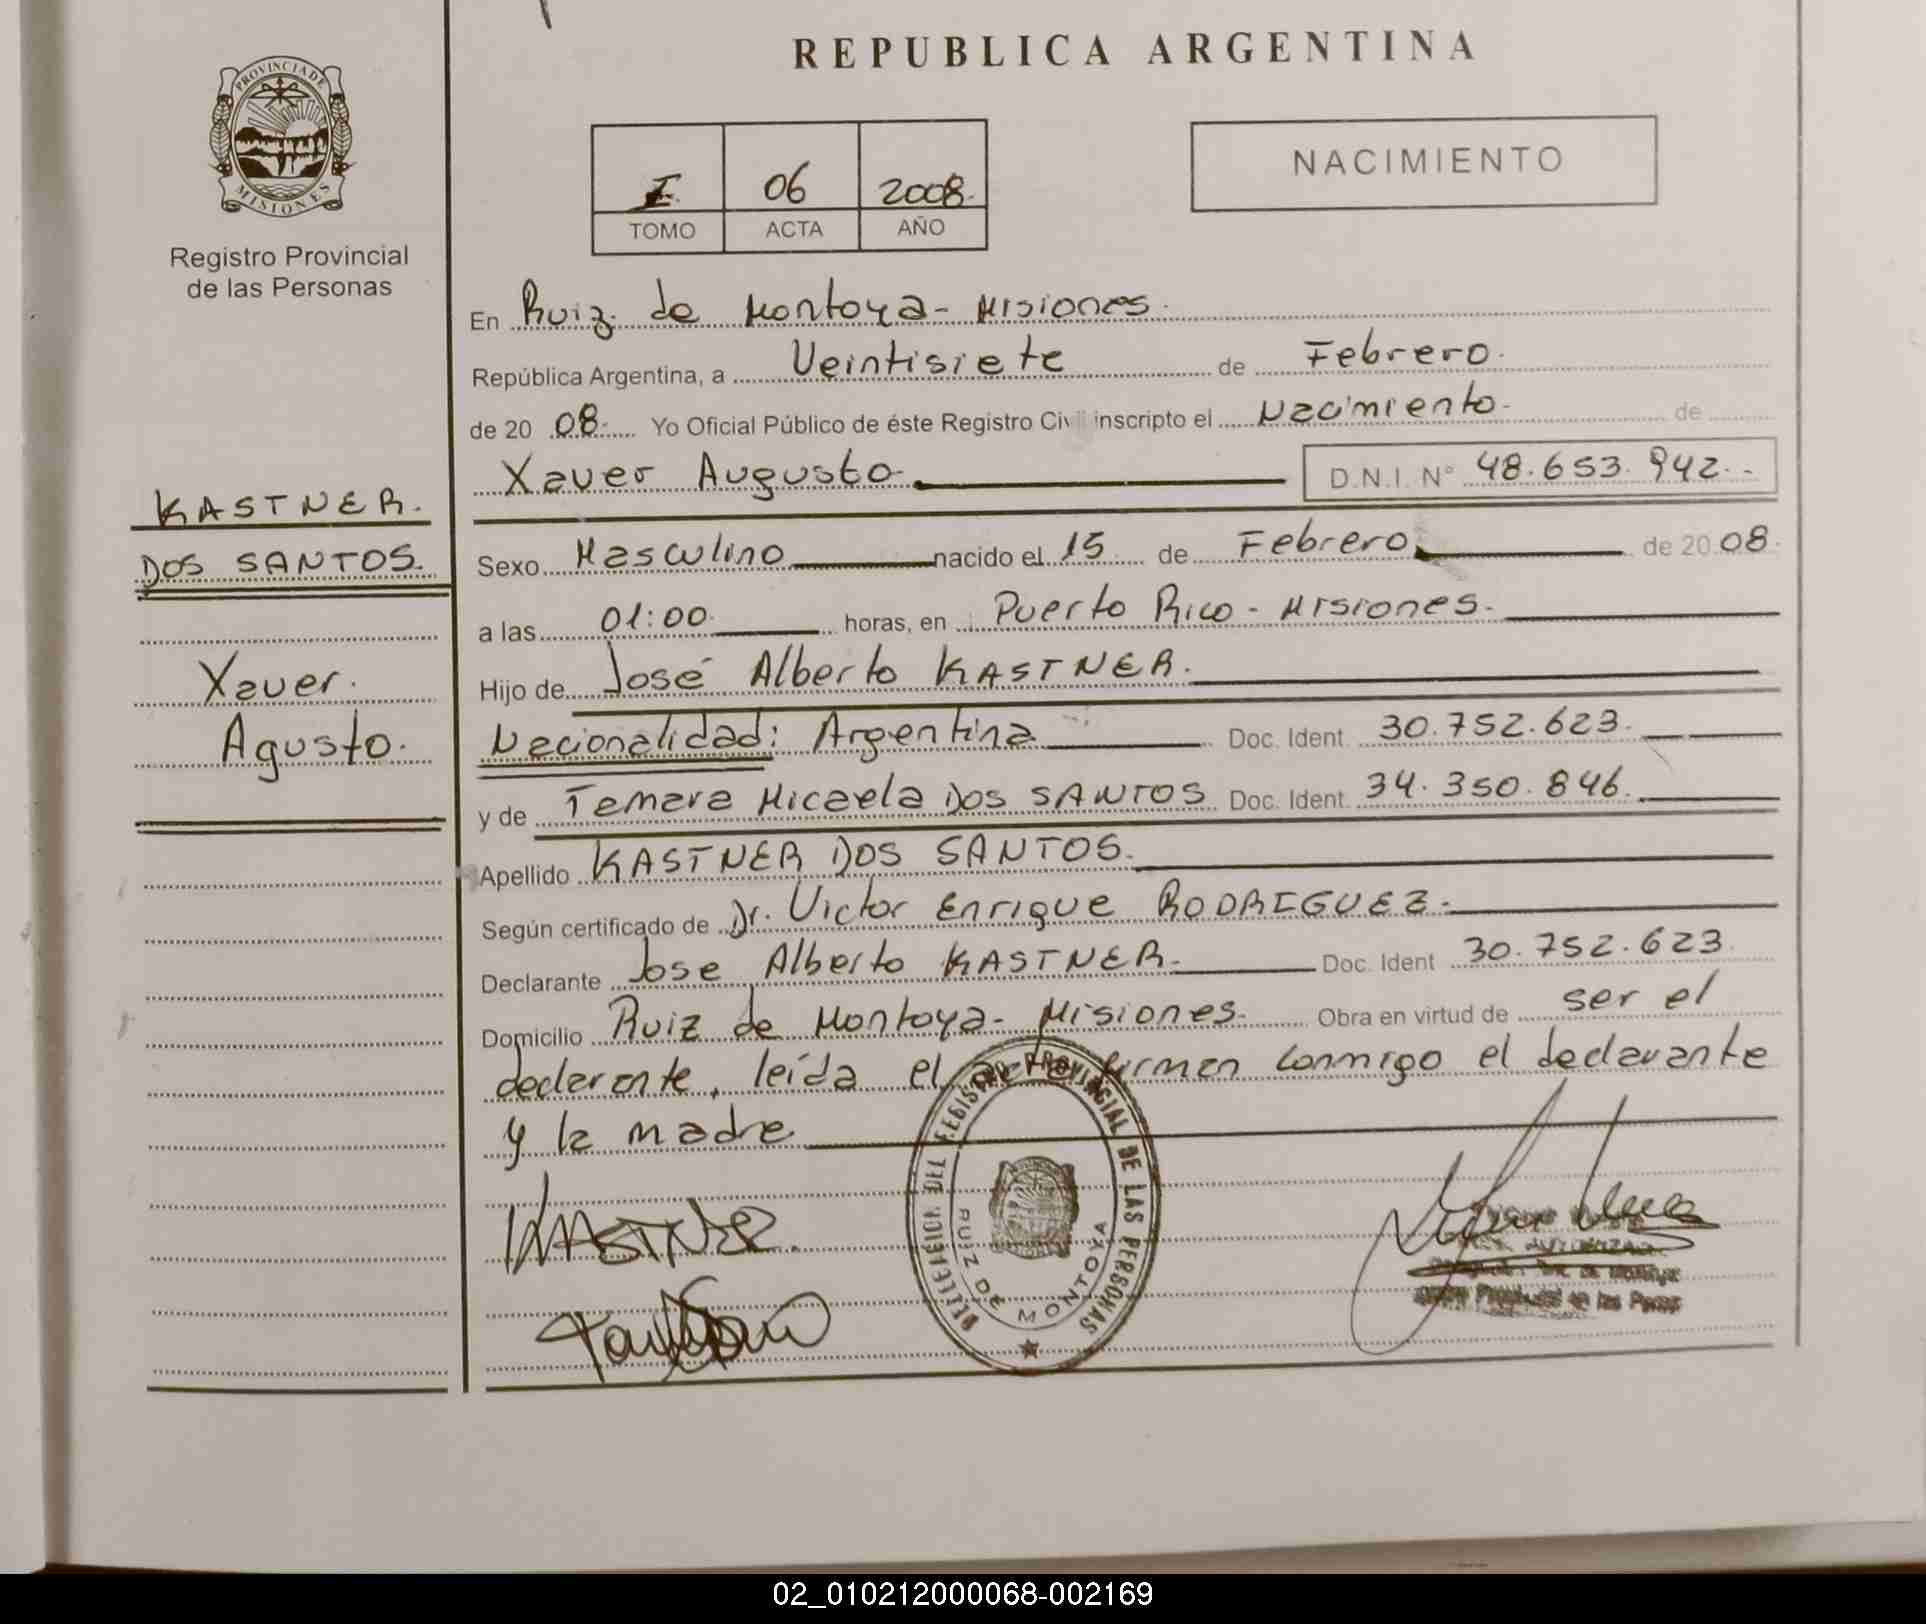 REPUBLICA ARGENTINA
PROVINCIA DE
MISIONES
Registro Provincial
de las Personas
I 06 2008.
TOMO ACTA AÑO
NACIMIENTO
En Ruiz de Montoya - Misiones.
República Argentina, a Veintisiete de Febrero.
de 20 08. Yo Oficial Público de éste Registro Civil inscripto el Nacimiento. de
Xaver Augusto. D.N.I. N° 48.653.942.-
KASTNER.
DOS SANTOS.
Xaver.
Agusto.
Sexo Masculino nacido el 15 de Febrero de 20 08.
a las 01:00. horas, en Puerto Rico - Misiones.
Hijo de José Alberto KASTNER.
Nacionalidad: Argentina Doc. Ident. 30.752.623.
y de Temara Micaela DOS SANTOS Doc. Ident. 34.350.846.
Apellido KASTNER DOS SANTOS.
Según certificado de Dr. Victor Enrique RODRIGUEZ.
Declarante Jose Alberto KASTNER. Doc. Ident 30.752.623.
Domicilio Ruiz de Montoya - Misiones. Obra en virtud de ser el
declarante, leída el acta firman conmigo el declarante
y la madre
KASTNER.
DELEGACION DEL REGISTRO PROVINCIAL DE LAS PERSONAS
RUIZ DE MONTOYA
02_010212000068-002169